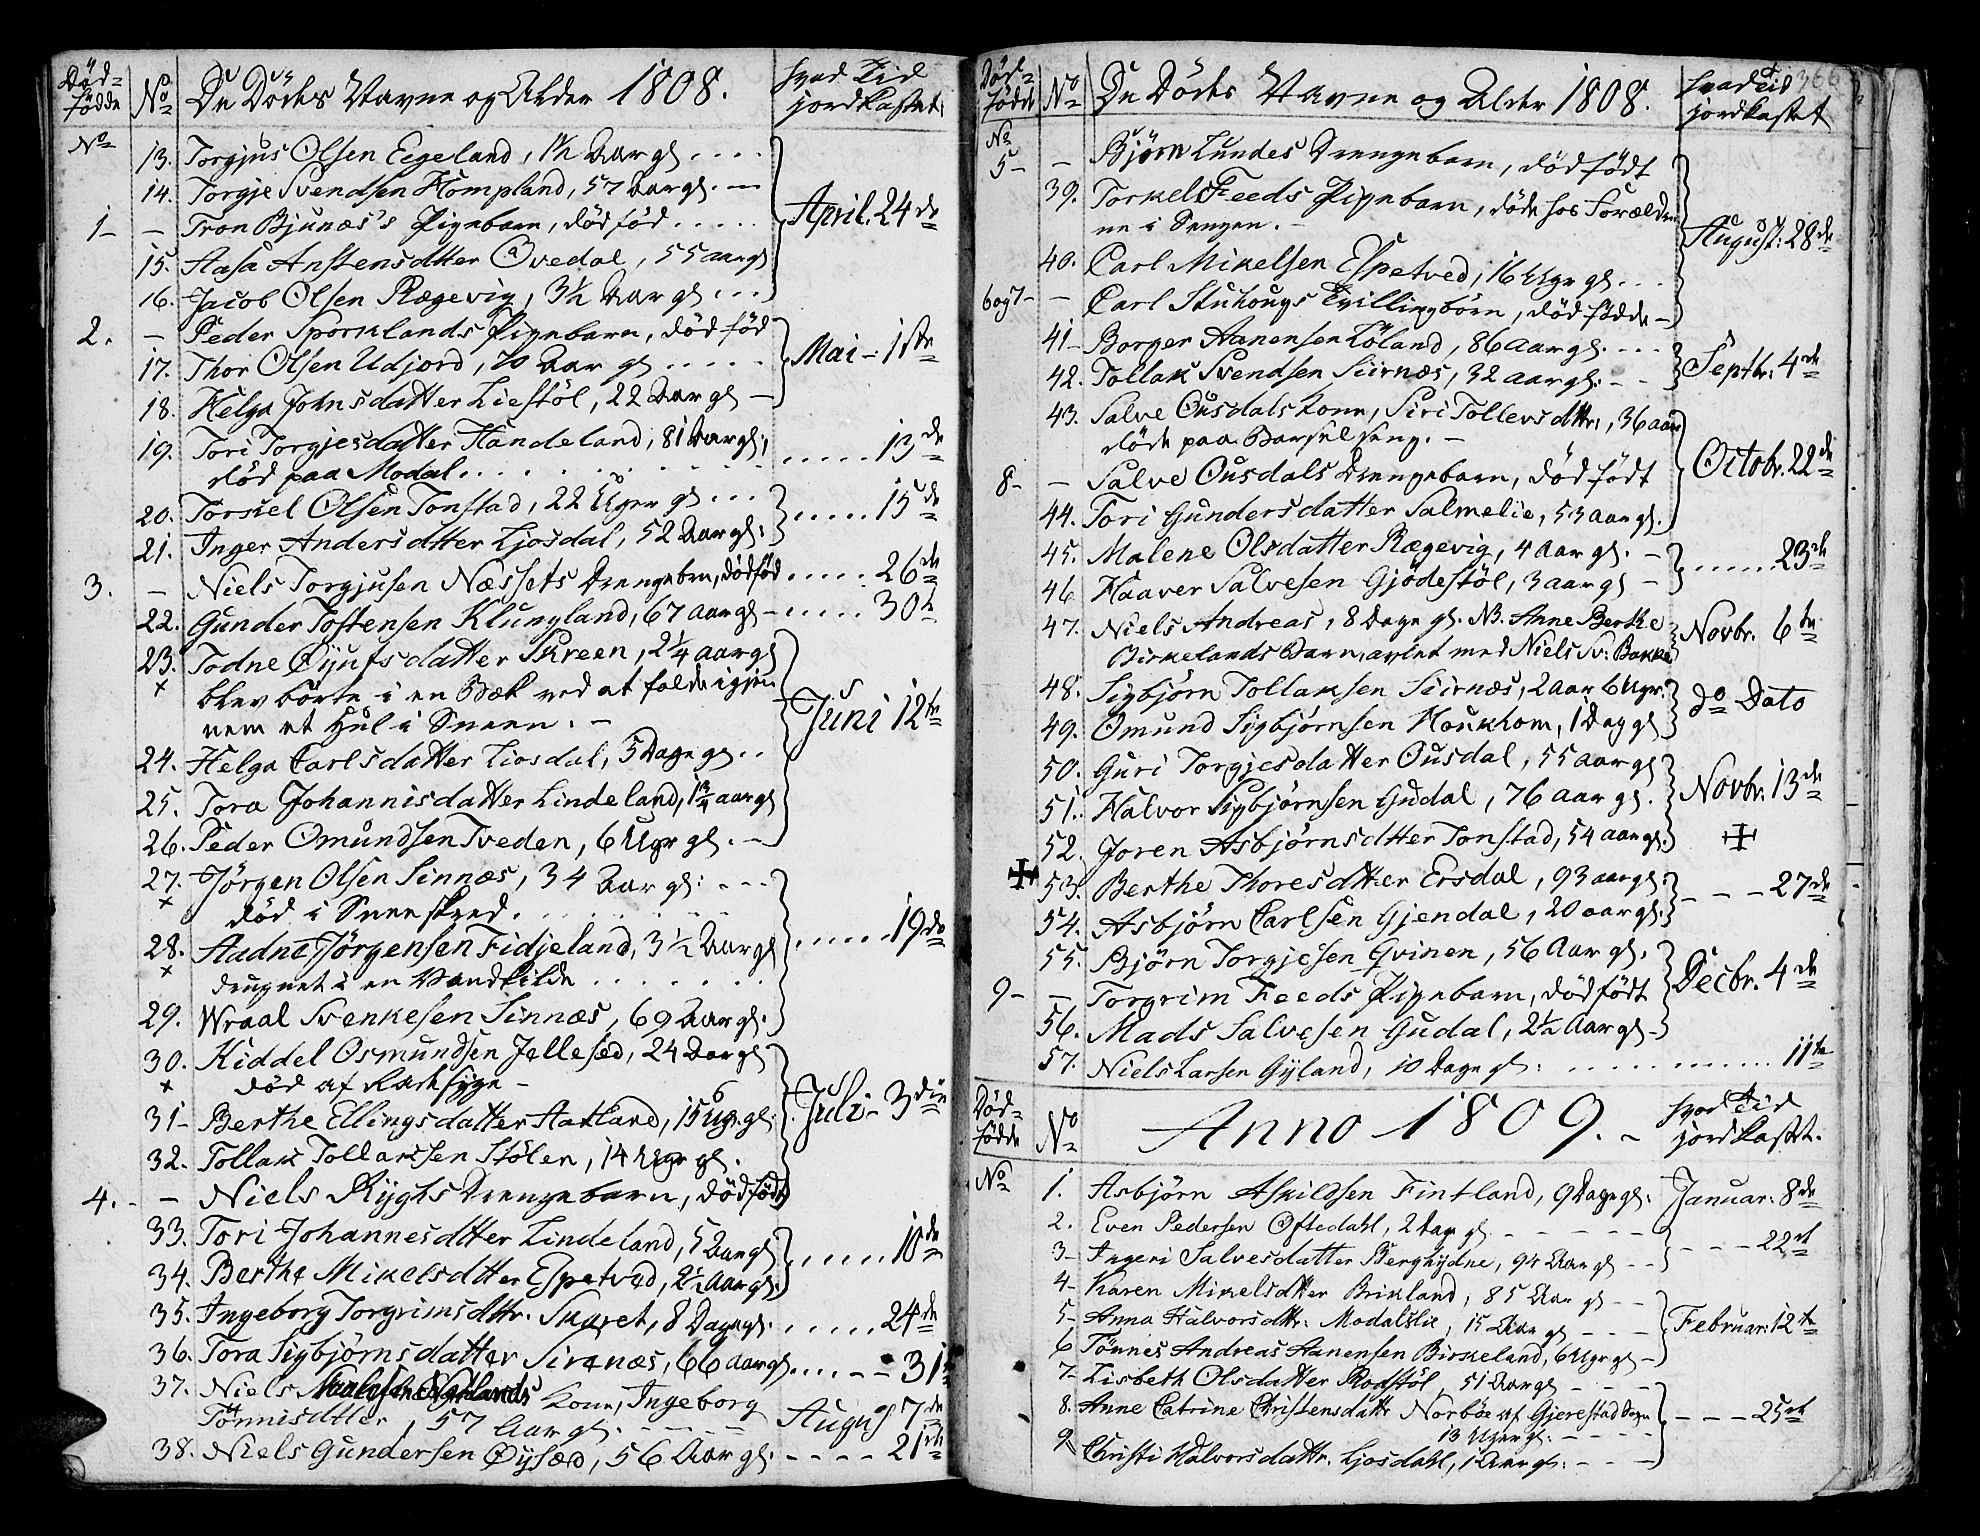 Död-
födde
No
De Dödes Navne og Alder 1808.
hvad Tid
jordkastet.
No
13. Torgjus Olsen Eigeland, 1½ Aar gl. ....
14. Torgje Svendsen Hompland, 57 Aar gl. —
1- — Tron Bjunæs's Pigebarn, dödfød .....
April. 24de
15. Aasa Anstensdtter Ovedal, 55 aar gl
16. Jacob Olsen Rægevig, 3½ Aar gl. ...
2. — Peder Sporklands Pigebarn, dödfød
17. Thor Olsen Udjord, 70 Aar gl .....
Mai - 1ste
18. Helga Johnsdatter Liestöl, 22 Aar gl —
19. Tori Torgjesdatter Handeland, 81 Aar gl,
död paa Modal. ........
..... 13de
20. Torkel Olsen Tonstad, 22 Uger gl ...
..... 15de
21. Inger Andersdtter Ljosdal, 52 Aar gl.
3. — Niels Torgjusen Næssets Drengebrn, dödfød
..... 26de
22. Gunder Tostensen Klungland, 67 aar gl -
..... 30te
23. Todne Öyufsdatter Skreen, 2¼ aar gl
x blev börte i en Bæk ved at falde igjen-
nem et Hul i Sneen. —
Juni 12te
24. Helga Carlsdatter Liosdal, 5 Dage gl ..
25. Tora Johannisdatter Lindeland, 1¾ aar gl
26. Peder Omundsen Tveden, 6 Ugr gl. —
27. Jörgen Olsen Sinnæs, 34 Aar gl: ...
x död i Sneeskred. ......
28. Aadne Jörgensen Fidjeland, 3½ Aar gl
..... 19de
x druknet i en Vandkilde ......
29. Wraal Svenkesen Sinnæs, 69 Aar gl.
30. Kiddel Osmundsen Jellesed, 24 Aar gl
x död af Radesyge -
31- Berthe Ellingsdatter Aamland, 15 Ugr. gl.
Juli - 3die
32. Tollak Tollaksen Stölen, 14 Ugr gl.
4. - — Niels Ryghs Drengebarn, dödfödt
33. Tori Johannesdtter Lindeland, 5 Aar gl
..... 10de
34. Berthe Mikelsdtter Espetved, 2½ Aar gl.
35. Ingeborg Torgrimsdttr. Skaret, 8 Dage gl.
..... 24de
36. Tora Sigbjörnsdatter Sirenæs, 66 aar gl.
... - - 31te
37. Niels Kone, Ingeborg
Tönnisdtter, 57 Aar gl. - - - - -
August 7de
38. Niels Gundersen Öysæd, 56 Aar gl.
- - - - 21de
366
Död-
födde
No
De Dödes Navne og Alder 1808.
hvad Tid
jordkastet
No
5- — Björn Lundes Drengebarn, dödfödt
39. Torkel Feeds Pigebarn, döde hos Forældre-
ne i Sengen. -
August: 28de
40. Carl Mikelsen Espetved, 16 Ugr gl. ...
6og7- — Carl Stuhougs Tvillingbörn, dödfödde -
41- Borger Aanensen Löland, 86 aar gl. ...
Septbr. 4de
42. Tollak Svendsen Siirnæs, 32 aar gl. - -
43. Salve Ousdals Kone, Siri Tollevsdttr, 36 aar
döde paa Barselseng. -
Octobr. 22de
8- — Salve Ousdals Drengebarn, dödfödt
44. Tori Gundersdatter Salmelie, 53 aar gl.
45. Malene Olsdatter Rægevig, 4 Aar gl. -
...... 23de
46 Haaver Salvesen Gjödestöl, 3 aar gl -
47. Niels Andreas, 8 Dage gl. NB. Anne Berthe
Birkelands Barn, avlet med Niels Sv: Bakke
Novbr. 6te
48. Sigbjörn Tollaksen Siirnæs, 2 Aar 6 Ugr.
do Dato
49. Omund Sigbjörnsen Houkhom, 1 Dag gl
50. Guri Torgjesdatter Ousdal, 55 aar gl
51. Halvor Sigbjörnsen Gudal, 76 aar gl.
Novbr. 13de
52. Joren Asbjörnsdtter Tonstad, 54 aar gl.
53. Berthe Thoresdtter Ersdal, 93 aar gl.
- - - 27de
54. Asbjörn Carlsen Gjendal, 20 aar gl.
55. Björn Torgjesen Qvinen, 56 Aar gl.
9- — Torgrim Feeds Pigebarn, dödfödt
Decbr. 4de
56. Mads Salvesen Gudal, 2½ Aar gl -
57. Niels Larsen Gyland, 10 Dage gl. .......... 11te
Död-
födde
No
Anno 1809. -
hvad Tid
jordkastet.
No
1. Asbjörn Askildsen Fintland, 9 Dage gl. Januar: 8de
2. Even Pedersen Oftedahl, 2 Dage gl - - - - -
- - - 22de
3- Ingeri Salvesdatter Berghydne, 94 Aar gl - -
4- Karen Mikelsdtter Brikland, 85 Aar gl - -
5- Anna Halvorsdttr. Modalslie, 15 Aar gl - - -
Februar: 12te
6 Tönnes Andreas Aanensen Birkeland, 6 Ugr gl -
7- Lisbeth Olsdatter Rodstöl, 51 Aar gl - - - -
8. Anne Catrine Christensdattr Norböe af Gjerestad Sogn
13 Uger gl. - - - -
- - - 25de
9 Christi Halvorsdattr. Ljosdahl, 1 Aar gl. - - -